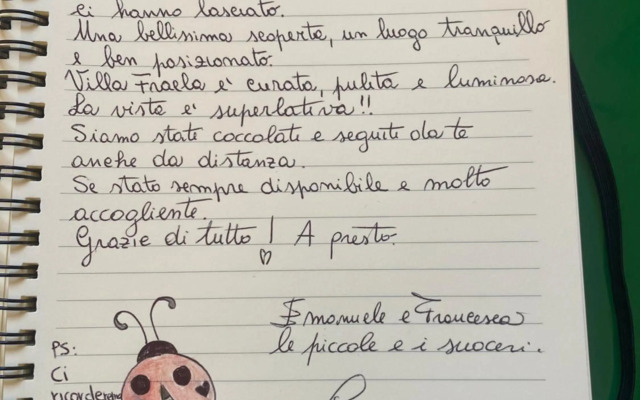 ci hanno lasciato.
Una bellissima scoperta, un luogo tranquillo
e ben posizionato.
Villa Fraela e' curata, pulita e luminosa.
La vista e' superlativa!!
Siamo stati coccolati e seguiti da te
anche da distanza.
Se stato sempre disponibile e molto
accogliente.
Grazie di tutto! A presto.
Emanuele e Francesca
le piccole e i suoceri.
PS:
Ci